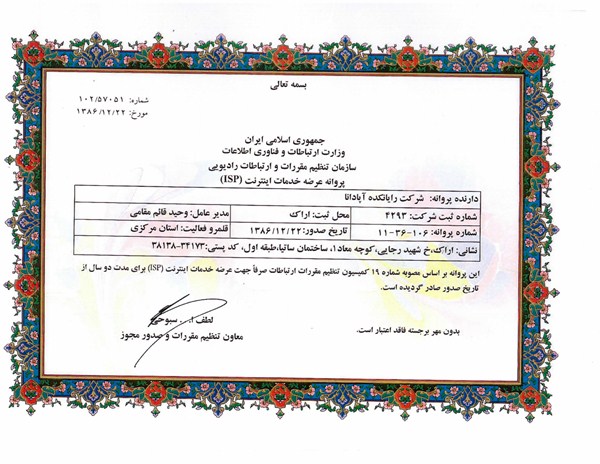 بسمه تعالی
شماره: ۱۰۲/۵۷۰۵۱
مورخ: ۱۳۸۶/۱۲/۲۲
جمهوری اسلامی ایران
وزارت ارتباطات و فناوری اطلاعات
سازمان تنظیم مقررات و ارتباطات رادیویی
پروانه عرضه خدمات اینترنت (ISP)
دارنده پروانه: شرکت رایانکده آپادانا
شماره ثبت شرکت: ۴۲۹۳ محل ثبت: اراک مدیر عامل: وحید قائم مقامی
شماره پروانه: ۱۰۶-۳۶-۱۱ تاریخ صدور:۱۳۸۶/۱۲/۲۲ قلمرو فعالیت: استان مرکزی
نشانی: اراک،خ شهید رجایی،کوچه معاد۱، ساختمان ساتیا،طبقه اول، کد پستی:۳۴۱۷۳-۳۸۱۳۸
این پروانه بر اساس مصوبه شماره ۱۹ کمیسیون تنظیم مقررات ارتباطات صرفاً جهت عرضه خدمات اینترنت (ISP) برای مدت دو سال از
تاریخ صدور صادر گردیده است.
لطف ا... سبوحی
معاون تنظیم مقررات و صدور مجوز
بدون مهر برجسته فاقد اعتبار است.